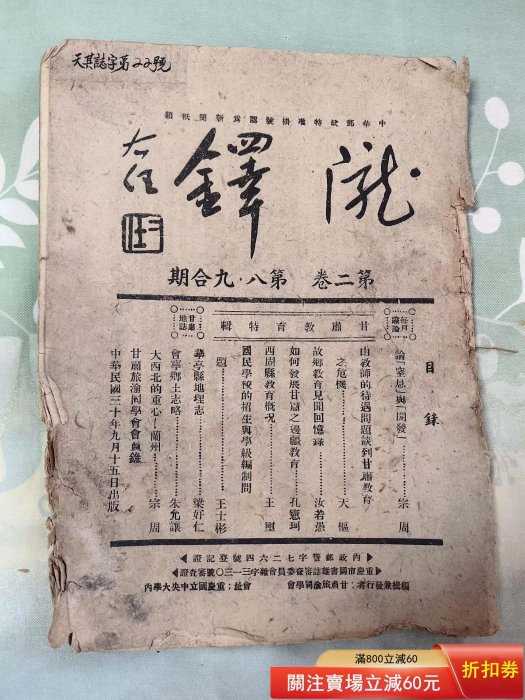 天其誌字第22號
中華郵政特准掛號認為新聞紙類
隴鐸
右任
第二卷 第八·九合期
目錄
每月論
論「窒息」與「開發」 宗周
甘肅教育特輯
由教師的待遇問題談到甘肅教育
之危機 天樞
故鄉教育見聞回憶錄 汝若愚
如何發展甘肅之邊疆教育 孔憲珂
西固縣教育概況 王
國民學校的招生與學級編制問
題 王士彬
甘肅地誌
華亭縣地理志 梁好仁
會寧鄉土志略 朱允讓
大西北的重心——蘭州 宗周
甘肅旅渝同學會會員錄
中華民國三十年九月十五日出版
內政部警字七二六四號登記證
重慶市圖書雜誌審查委員會雜字三一三〇號審查證
編輯兼發行者：甘肅旅渝同學會 會址：重慶國立中央大學內
滿800立減60
關注賣場立減60元
折扣券